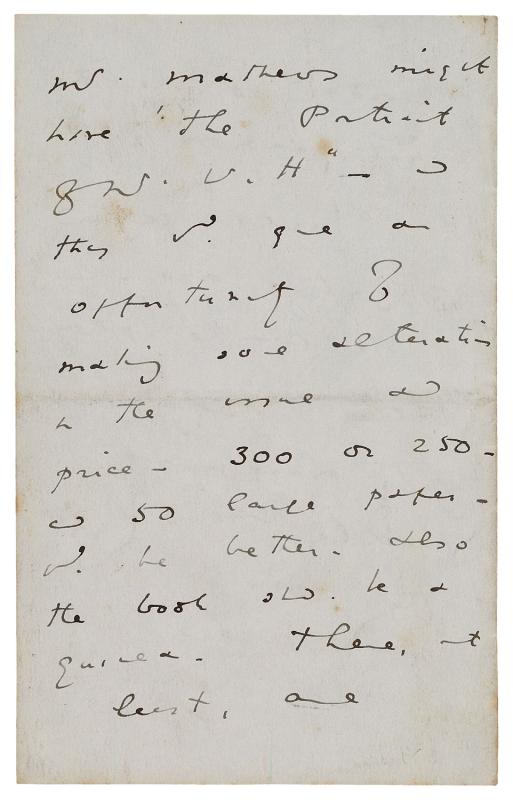 Mr. Mathews might
have 'The Portrait
of Mr. W. H" — and
this wd. give an
opportunity of
making some alteration
in the issue and
price — 300 or 250 -
and 50 large paper -
wd. be better. Also
the book shd. be a
guinea. These, at
least, are